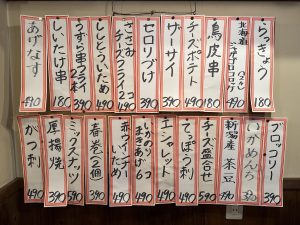 らっきょう 180
北海道
烏皮串 180
チーズポテト 490
ザーサイ 390
セロリづけ 390
ささみ
チーズフライ 2コ 490
ししとういため 390
うずら串フライ
3本 390
しいたけ串 180
あげなす 490
ブロッコリー 390
いかめんち 390
新潟産 茶豆 390
チーズ盛合せ 590
てっぽう刺 490
エシャレット 490
いかのソコ
まきあげ 6コ 490
赤ウインナー
いため 490
春巻(2個) 390
ミックスナッツ 590
厚揚焼 390
がつ刺 490